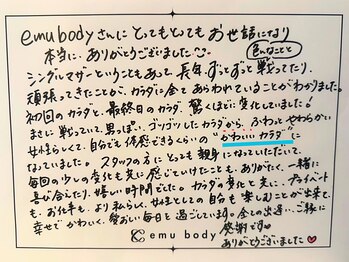 emu bodyさんにとってもとってもお世話になり
本当に、ありがとうございました
色んなことと
シングルマザーということもあって、長年ずっとずっと戦ってたり、
頑張ってきたことが、カラダに全てあらわれていることがわかりました。
初回のカラダと、最終日のカラダ、驚くほどに変化していました!
まさに戦っていて、男っぽい、ゴツゴツしたカラダから、ふわっとやわらかい
女性らしくて、自分でも体感できるくらいの"かわいいカラダ"に
なっていました。スタッフの方にとっても親身になっていただいて、
毎回の少しの変化も共に感じていけたことも、ありがたく、一緒に
喜び合えたり、嬉しい時間でした。カラダの変化と共に、プライベート
も、お仕事も、より私らしく、女性としての自分も楽しむことが出来て、
幸せで、かわいく、愛おしい毎日を過ごしています。全ての出逢い、ご縁に
感謝です
ありがとうございました
emu body